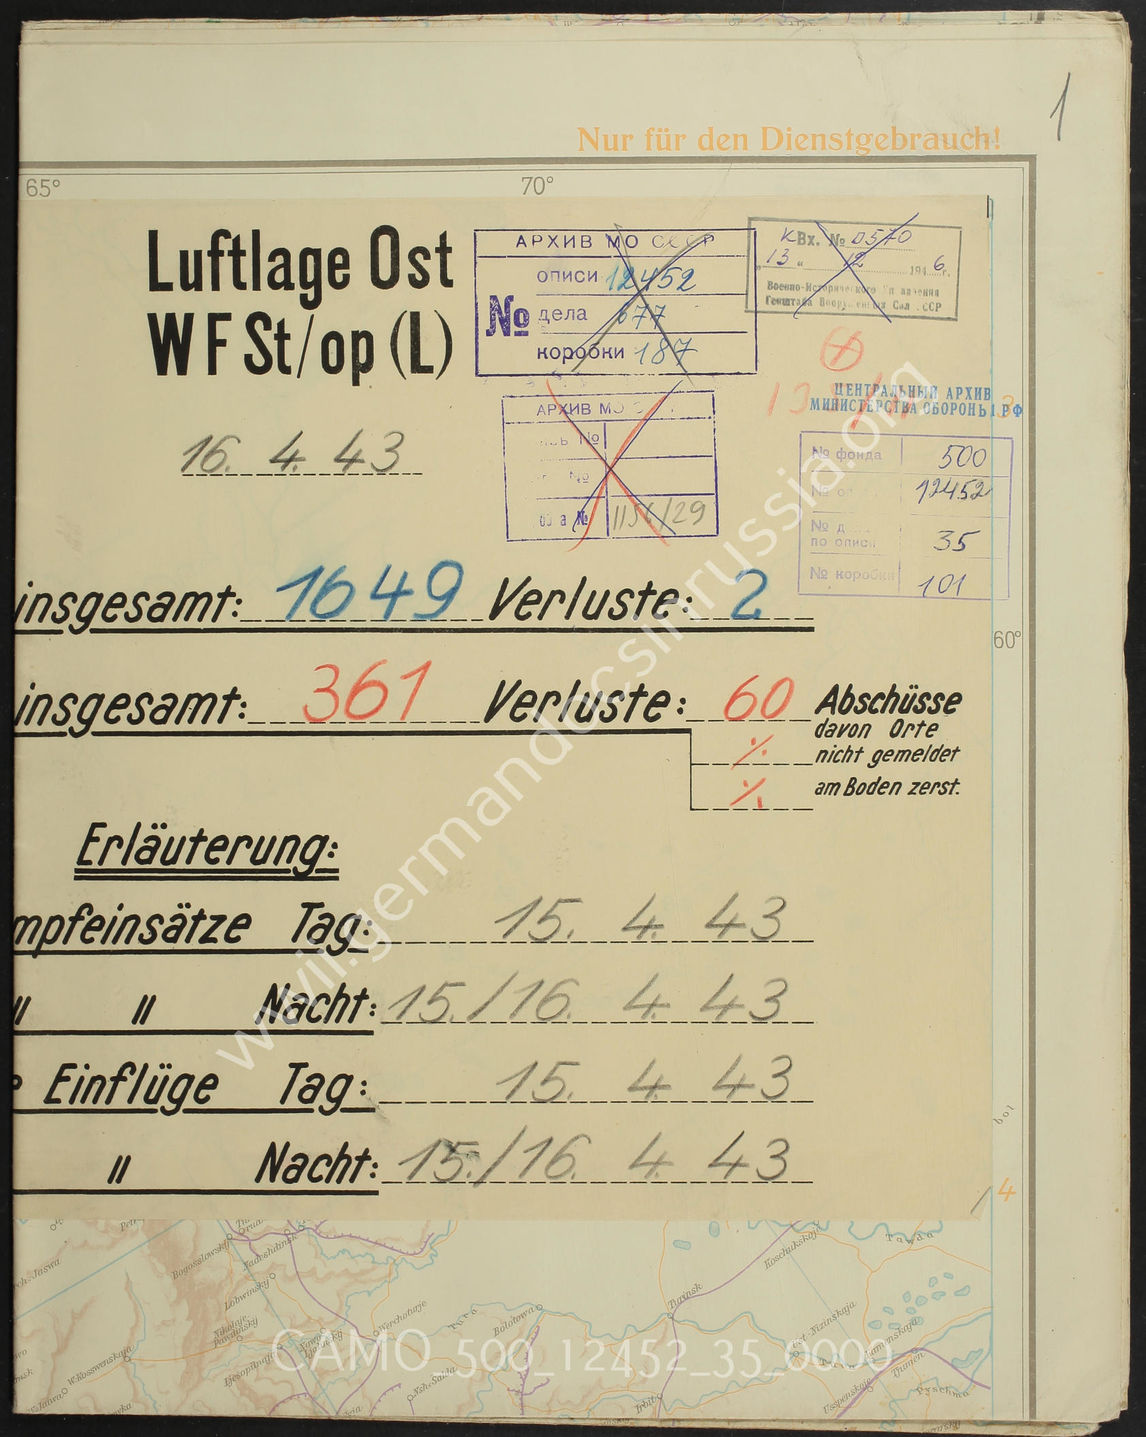 1
Nur für den Dienstgebrauch!
65° 70°
Luftlage Ost
WFSt/op (L)
16. 4. 43
АРХИВ МО СССР
№
описи 12452
дела 677
коробки 187
Вх. № 0570
"13" 12 1946 г.
Генштаба
АРХИВ МО
№
№
№ 1156/29
13
ЦЕНТРАЛЬНЫЙ АРХИВ
МИНИСТЕРСТВА ОБОРОНЫ РФ
3
№ фонда 500
№ 12452
№ д
по описи 35
№ коробки 101
insgesamt: 1649 Verluste: 2
60°
insgesamt: 361 Verluste: 60 Abschüsse
davon Orte
nicht gemeldet
am Boden zerst.
Erläuterung:
mpfeinsätze Tag: 15. 4. 43
" " Nacht: 15./16. 4. 43
Einflüge Tag: 15. 4. 43
" Nacht: 15./16. 4. 43
4
Bogosslowskij
Nadeshdinsk
Lobwinskij
Werchoturje
Bolotowa
Turinsk
Koschukskaja
Tawda
Nizinskaja
Kamenskaja
Tjumen
Usspenskoje
Pyschma
Irbit
Nsh. Salda
W.Kosswenskaja
www.wwii.germandocsinrussia.org
CAMO_500_12452_35_0000